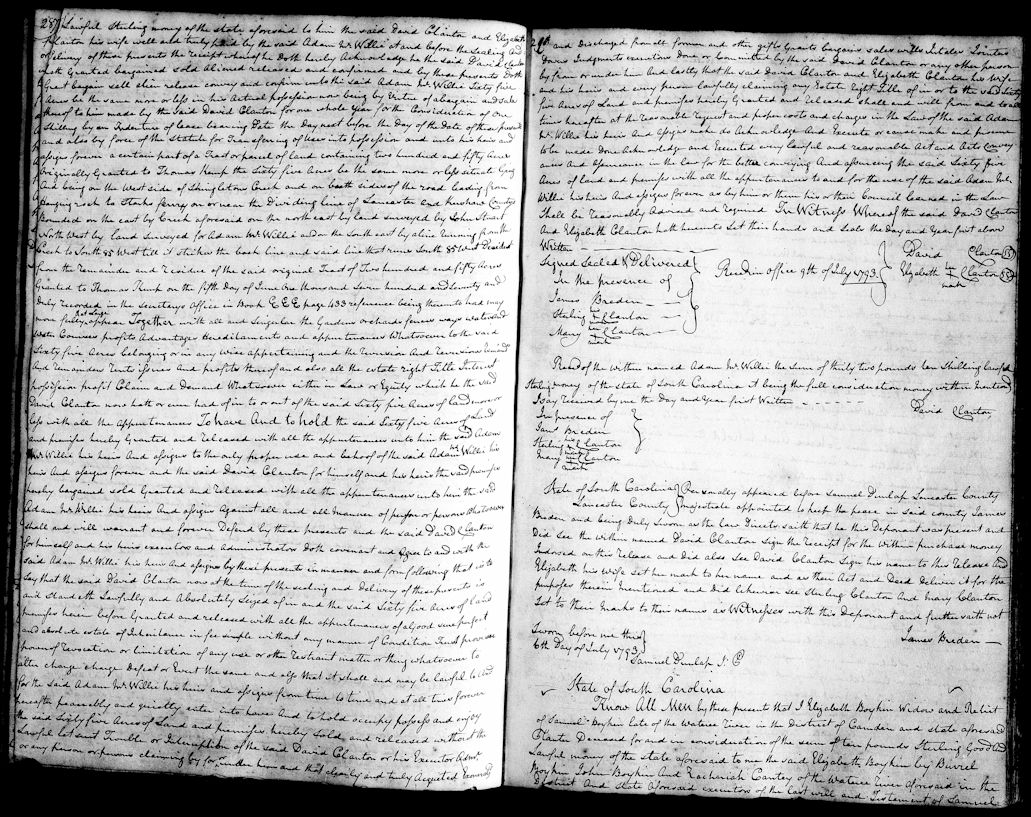 28 Lawful Sterling money of the state aforesaid to him the said David Clanton and Elizabeth
Clanton his wife well and truly paid by the said Adam Mc Willie at and before the Sealing And
delivery of these presents the receipt whereof he Doth hereby Acknowledge he the said David Clanton
hath Granted bargained sold Aliened released and confirmed and by these presents Doth
Grant bargain sell alien release convey and confirm unto the said Adam Mc Willie Sixty five
Acres be the same more or less in his Actual possession now being by Virtue of a bargain and sale
thereof to him made by the Said David Clanton for one whole Year for the Consideration of one
Shilling by an Indenture of lease bearing Date the Day next before the Day of the Date of these presents
and also by force of the statute for Transferring of Uses into possession and unto his heirs and
assigns forever a certain part of a Tract or parcel of land containing two hundred and fifty Acres
Originally Granted to Thomas Kemp the Sixty five Acres be the same more or less situate lying
And being on the West side of Shingletons Creek and on both sides of the road leading from
hanging rock to Starks ferry on or near the Dividing line of Lancaster and Kershaw County
Bounded on the east by Creek aforesaid on the north east by land surveyed by John Stuart
North West by land surveyed for Adam Mc Willie and on the South east by a line running from the
Creek to South 85 West till it strikes the back line and said line that runs South 85 West Divided
from the remainder and residue of the said original Tract of Two hundred and fifty Acres
Granted to Thomas Kemp on the fifth Day of June One thousand and Seven hundred and Seventy and
Duly recorded in the secretarys Office in Book EEE page 433 reference being thereunto had may
more fully at Large appear Together with all and Singular the Gardens orchards fences ways waters and
Water Courses profits Advantages Hereditaments and appurtenances Whatsoever to the said
Sixty five Acres belonging or in any wise appertaining and the reversion And reversions remainder
And remainders rents issues And profits thereof and also all the estate right Title Interest
possession profit Claim and Demand Whatsoever either in Law or Equity which he the said
David Clanton now hath or ever had of in to or out of the said Sixty five Acres of Land more or
less with all the Appurtenances To have And to hold the said Sixty five Acres of Land
and premises hereby Granted and released with all the appurtenances unto him the said Adam
Mc Willie his heirs And assigns to the only proper use and behoof of the said Adam Mc Willie his
heirs And assigns forever and the said David Clanton for himself and his heirs the said premises
hereby bargained sold Granted and released with all the appurtenances unto him the said
Adam Mc Willie his heirs And assigns Against all and all Manner of person or persons Whatsoever
shall and will warrant and forever Defend by these presents and the said David Clanton
for himself and his heirs executors and administrators doth covenant and agree to and with the
said Adam Mc Willie his heirs And assigns by these presents in manner and form following that is to
say that the said David Clanton now at the time of the sealing and Delivery of these presents is
and standeth Lawfully and Absolutely Seized of in and the said Sixty five Acres of land
premises herein before Granted and released with all the appurtenances of a good sure perfect
and absolute estate of Inheritance in fee simple without any manner of Condition Trust proviso
power of revocation or limitation of any use or other restraint matter or thing whatsoever to
alter charge change Defeat or Evict the same and also that it shall and may be lawful to and
for the said Adam Mc Willie his heirs and assigns from time to time and at all times forever
hereafter peaceably and quietly enter into have And to hold occupy possess and enjoy
the said Sixty five Acres of Land and premises hereby Sold and released without the
Lawful let suit Trouble or Interruption of the said David Clanton or his Executors Admrs
or any person or persons claiming by for under him and that clearly and truly Acquitted
and Discharged from all former and other gifts Grants bargains sales wills Intales Jointer
Dowrs Judgments executions Done or Committed by the said David Clanton or any other person
by from or under him And lastly that the said David Clanton and Elizabeth Clanton his Wife
and his heirs and every person lawfully claiming any Estate right Title of in or to the said Sixty
five Acres of Land and premises hereby Granted and released shall and will from and to all
times hereafter at the reasonable request and proper costs and charges in the Law of the said Adam
Mc Willie his heirs And assigns make do Acknowledge And Execute or cause make and procure
to be made Done Acknowledge and Executed every lawful and reasonable Act and Acts Convey
ances And Assurances in the law for the better conveying And assurancing the said Sixty five
Acres of land and premises with all the appurtenances to and for the use of the said Adam Mc
Willie his heirs And assigns forever as by him or them his or their Council Learned in the Law
Shall be reasonably Advised and required In Witness Whereof the said David Clanton
And Elizabeth Clanton hath hereunto Set their hands and Seals the Day and Year first above
Written
Signed Sealed & Delivered
In the presence of
James Breden
Sterling his X mark Clanton
Mary her X mark Clanton
Recd in office 9th of July 1793
David Clanton
Elizabeth her X mark Clanton
Recd of the within named Adam Mc Willie the Sum of thirty two pounds ten Shilling Lawful
Sterling money of the state of South Carolina it being the full consideration money within Mentioned
I say received by me the Day and Year first Written
David Clanton
In presence of
James Breden
Sterling his X mark Clanton
Mary her X mark Clanton
State of South Carolina
Lancaster County
Personally appeared before Samuel Dunlap Lancaster County
Majestrate appointed to keep the peace in said county James
Breden and being Duly Sworn as the law Directs saith that he this Deponant was present and
Did see the within named David Clanton sign the receipt for the within purchase money
Indorsed on this release and Did also see David Clanton Sign his name to this release and
Elizabeth his wife set her mark to her name and as their Act and Deed deliver it for the
purposes therein mentioned and Did likewise see Sterling Clanton And Mary Clanton
Set to their marks to their names as Witnesses with this Deponant and further saith not
James Breden
Sworn before me this
6th Day of July 1793
Samuel Dunlap J. P
State of South Carolina
Know All Men by these present that I Elizabeth Boykin Widow and Relict
of Samuel Boykin late of the Wateree River in the District of Camden and state aforesaid
Planter Deceased for and in consideration of the sum of ten pounds Sterling Good And
Lawful money of the state aforesaid to me the said Elizabeth Boykin by Burrel
Boykin John Boykin And Zachariah Cantey of the Wateree River aforesaid in the
District And state aforesaid executors of the last will and Testament of Samuel